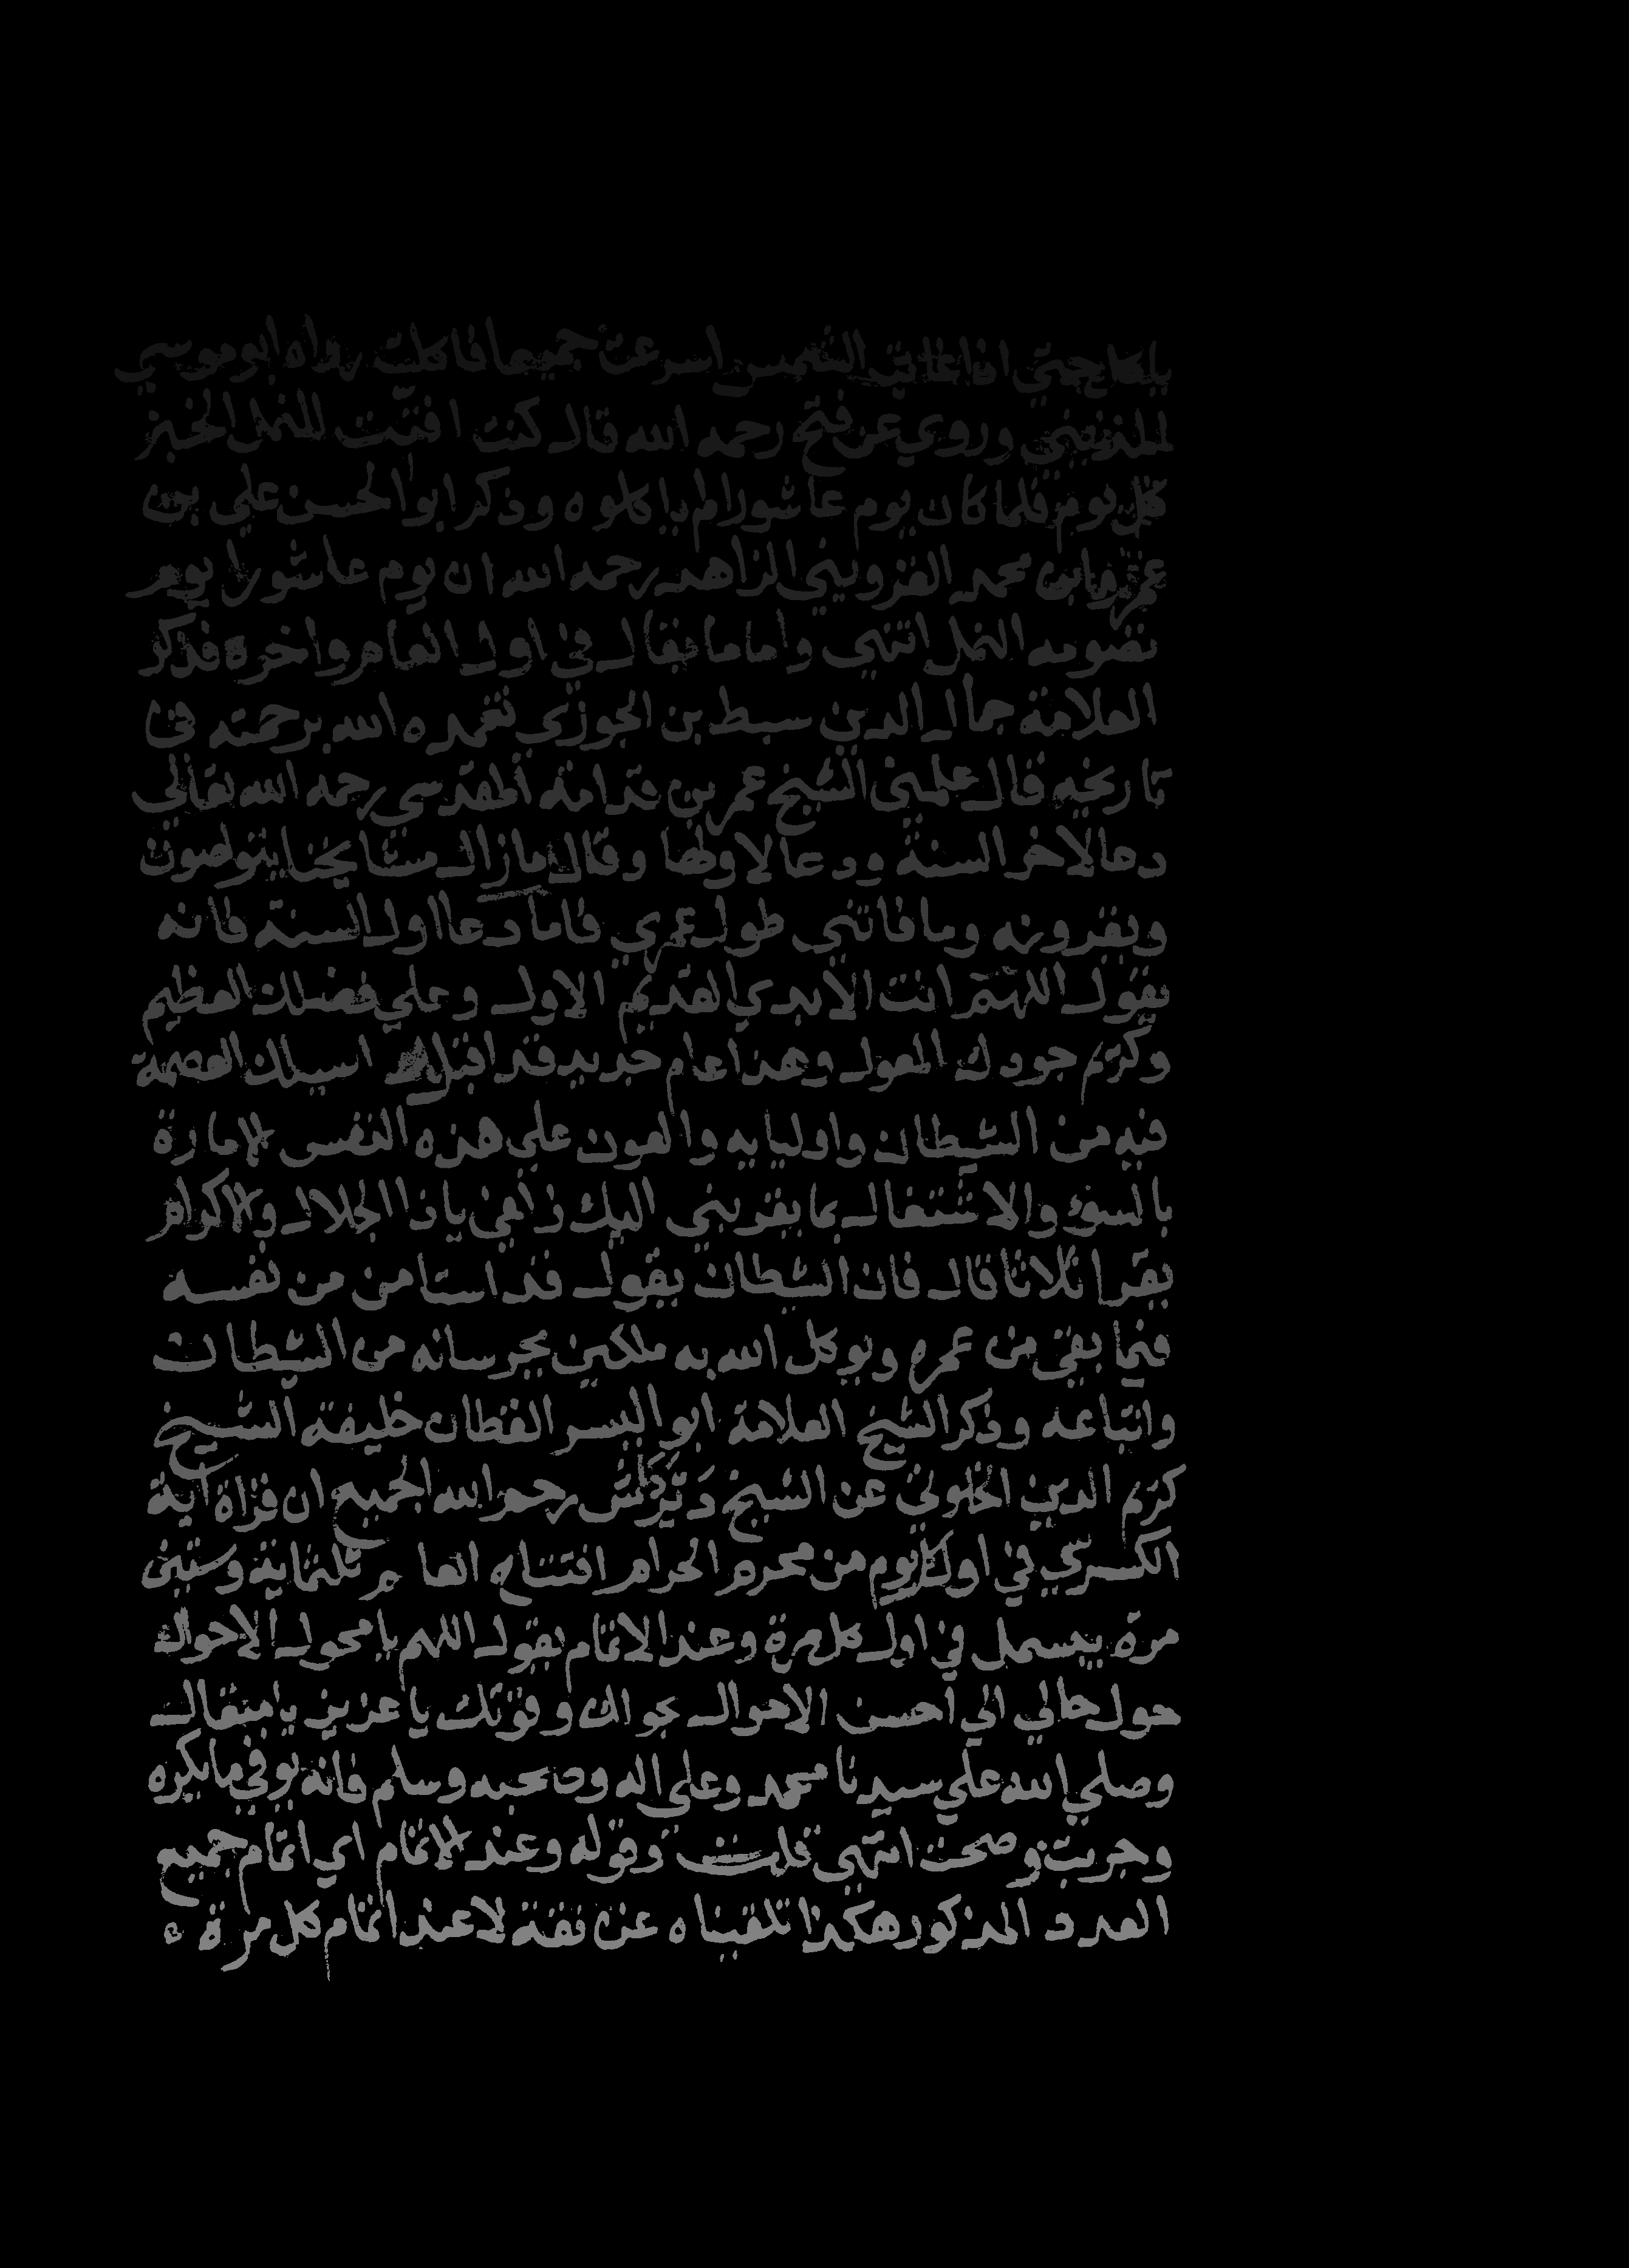 حتي اذا غابت الشمس اسرعت جميعا فاكلت رواه ابو موسي
المديني وروي عن فتح رحمه الله قال كنت افتت للنمل الخبز
كل يوم فلما كان يوم عاشورا لم ياكلوه وذكر ابو الحسن علي بن
محمد القزويني الزاهد رحمه الله ان يوم عاشورا يوم
تصومه النمل انتهي واما ما يقال في اول العام واخره فذكر
العلامة جمال الدين سبط بن الجوزي تغمده الله برحمته في
تاريخه قال علمني الشيخ عمر بن قدامة المقدسي رحمه الله تعالي
دعا لاخر السنة ودعا لاولها وقال ما زال مشايخنا يتواصون
ويقرونه وما فاتني طول عمري فاما دعا اول السنة فانه
يقول اللهم انت الابدي القديم الاول وعلي فضلك العظيم
وكرم جودك المعول وهذا عام جديد قد اقبل اسيلك العصمة
فيه من الشيطان واوليايه والعون علي هذه النفس الامارة
بالسوء والاشتغال بما يقربني اليك زلفي ياذا الجلال والاكرام
يقرا ثلاثا قال فان الشطان يقول قد استامن من نفسه
فيما بقي من عمره ويوكل الله به ملكين يحرسانه من الشيطان
واتباعه وذكر الشيخ العلامة ابو اليسر القطان خليفة الشيخ
كريم الدين الخلوتي عن الشيخ دَمِرْدَاش رحم الله الجميع ان قراة اية
الكسرسي في اول يوم من محرم الحرام افتتاح العام ثلثماية وستين
مرة يبسمل في اول كل مرة وعند الاتمام يقول اللهم يا محول الاحوال
حول حالي الي احسن الاحوال بحولك وقوتك يا عزيز يا متعال
وصلي الله علي سيدنا محمد وعلي اله وصحبه وسلم فانه يوفي ما يكره
وجربت وصحت انتهي قلت وقوله وعند الاتمام اي اتمام جميع
العدد المذكور هكذا تلقيناه عن ثقة لا عند اتمام كل مرة ه